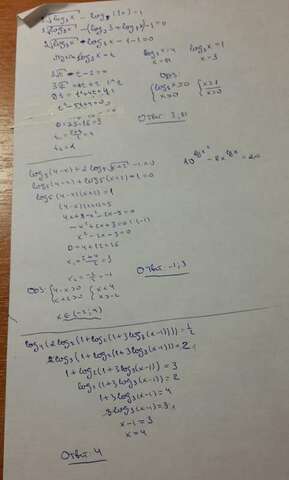 3√log₃x - log₃(3x) = 1
3√log₃x - (log₃3 + log₃x) - 1 = 0
3√log₃x - log₃x - 1 - 1 = 0
log₃x = t
3√t - t - 2 = 0
3√t = t + 2
9t = t² + 4t + 4
t² - 5t + 4 = 0
D = 25 - 16 = 9
log₃x = 4
x = 81
log₃x = 1
x = 3
ОДЗ:
{ log₃x ≥ 0
x > 0
{ x ≥ 1
x > 0
Ответ: 3; 81
log₅(4-x) + 2log₅√(x+2) - 1 = 0
log₅(4-x) + log₅(x+2) - 1 = 0
log₅(4-x)(x+2) = 1
(4-x)(x+2) = 5
4x + 8 - x² - 2x - 5 = 0
-x² + 2x + 3 = 0 |·(-1)
x² - 2x - 3 = 0
D = 4 + 12 = 16
x₁ = (2+4)/2 = 3
x₂ = -2/2 = -1
Ответ: -1; 3
ОДЗ: { 4-x > 0
x+2 > 0
{ x < 4
x > -2
x ∈ (-2; 4)
log₄(2log₃(1+log₂(1+3log₃(x-1)))) = 1/2
2log₃(1+log₂(1+3log₃(x-1))) = 2
1 + log₂(1+3log₃(x-1)) = 3
log₂(1+3log₃(x-1)) = 2
1 + 3log₃(x-1) = 4
3log₃(x-1) = 3
x - 1 = 3
x = 4
Ответ: 4